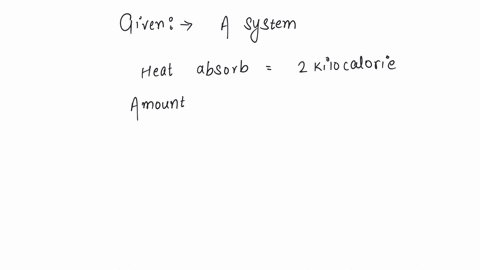 Given:→ A system
Heat absorb = 2 kilocalorie
Amount